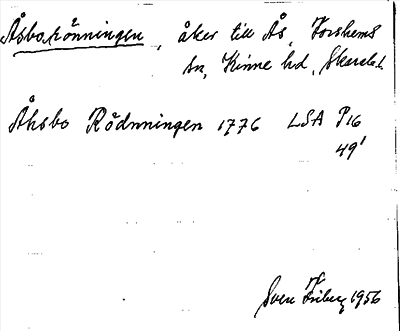 Åsborönningen, åker till Ås, Forshems
sn, Kinne hd, Skarab. l.
Åhsbo Rödnningen 1776 LSA P16
49¹
Sven Friberg 1956